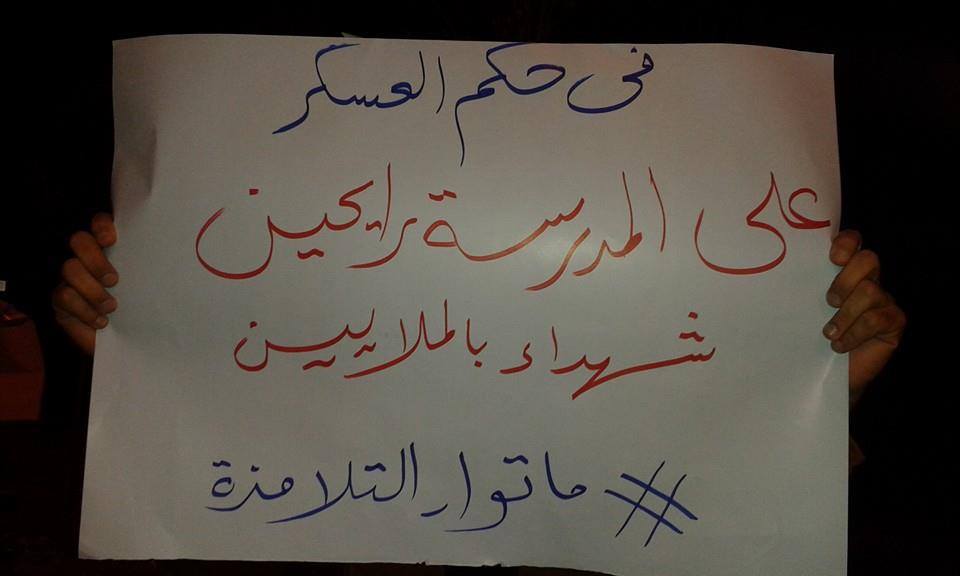 فى حكم العسكر
على المدرسة رايحين
شهداء بالملايين
#ماتوا_التلامذة